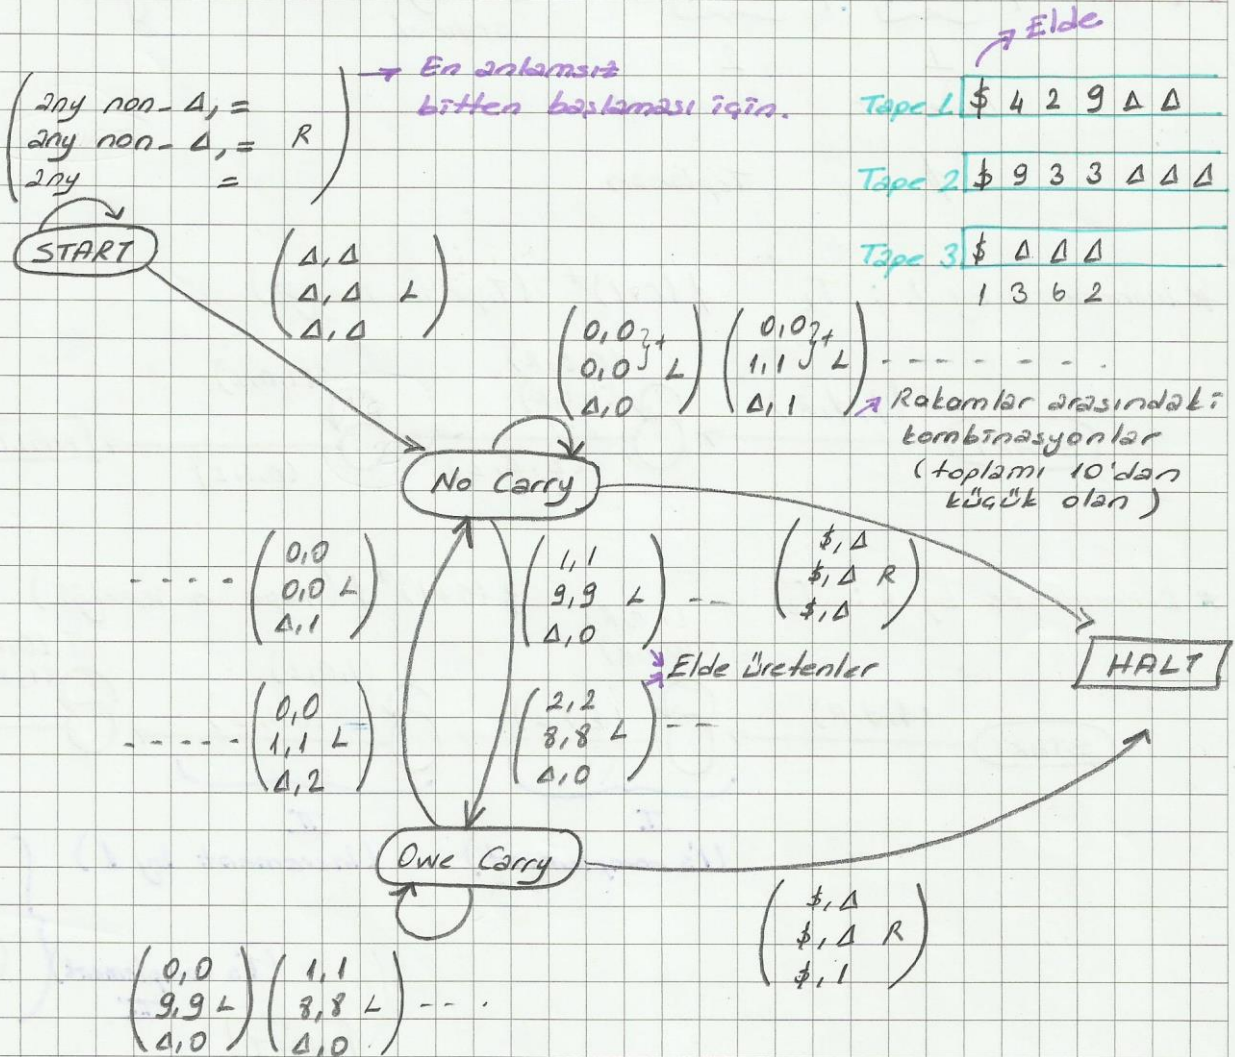 any non-Δ, =
any non-Δ, = R
any =
→ En anlamsız
bitten başlaması için.
Elde
Tape 1 $ 4 2 9 Δ Δ
Tape 2 $ 9 3 3 Δ Δ Δ
Tape 3 $ Δ Δ Δ
1 3 6 2
START
Δ, Δ
Δ, Δ L
Δ, Δ
0,0 } +
0,0 L
Δ,0
0,0 } +
1,1 L
Δ,1
- - - - - - - .
Rakamlar arasındaki
kombinasyonlar
(toplamı 10'dan
küçük olan)
No Carry
- - - - -
0,0
0,0 L
Δ,1
1,1
9,9 L
Δ,0
- -
$,Δ
$,Δ R
$,Δ
HALT
Elde üretenler
- - - - -
0,0
1,1 L
Δ,2
2,2
8,8 L
Δ,0
- -
Owe Carry
$,Δ
$,Δ R
$,1
0,0
9,9 L
Δ,0
1,1
8,8 L
Δ,0
- - - .